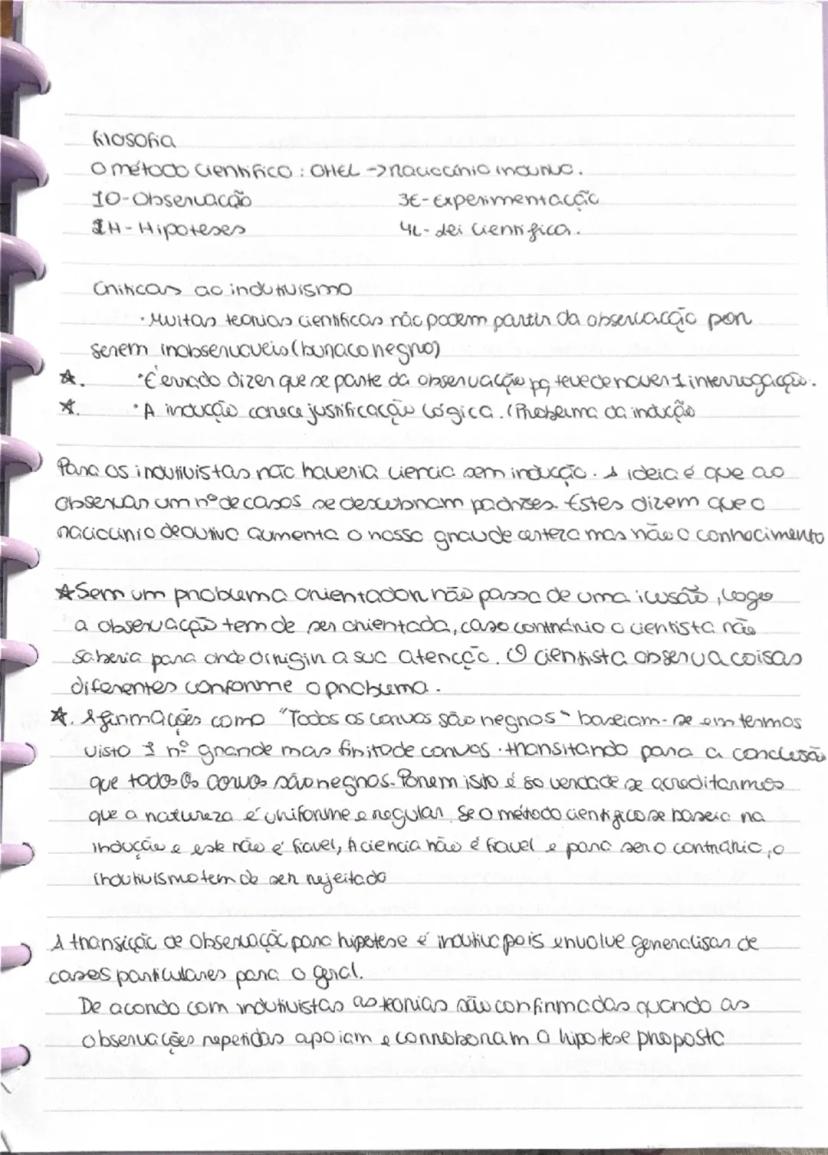 filosofia
O método científico: OHEL -> raciocínio indutivo.
1O-Observação 3E-Experimentacção
2H-Hipoteses 4L-Lei cientifica.
Criticas ao indutivismo
· Muitas teorias cientificas não podem partir da observacção por
serem inobservaveis (buraco negro)
☆. · É errado dizer que se parte da observação pq teve de haver 1 interrogação.
☆. · A inducção carece justificação lógica. (Problema da indução
Para os indutivistas não haveria ciencia sem inducção. A ideia é que ao
observar um nº de casos se descubram padrões. Estes dizem que o
raciocinio dedutivo aumenta o nosso grau de certeza mas não o conhecimento
☆ Sem um problema orientador não passa de uma ilusão, logo
a observação tem de ser orientada, caso contrário o cientista não
saberia para onde dirigir a sua atencção. O cientista observa coisas
diferentes conforme o problema.
☆. Afirmações como "Todos os corvos são negros" baseiam-se em termos
visto 1 nº grande mas finito de corvos. transitando para a conclusão
que todos os corvos são negros. Porem isto é so verdade se acreditarmos
que a natureza é uniforme e regular. Se o método cientifico se baseia na
indução e este não é fiavel, A ciencia não é fiavel e para ser o contrario, o
indutivismo tem de ser rejeitado
A transição de observação para hipotese é indutiva pois envolve generalisar de
casos particulares para o geral.
De acordo com indutivistas as teorias são confirmadas quando as
observações repetidas apoiam e corroboram a hipotese proposta